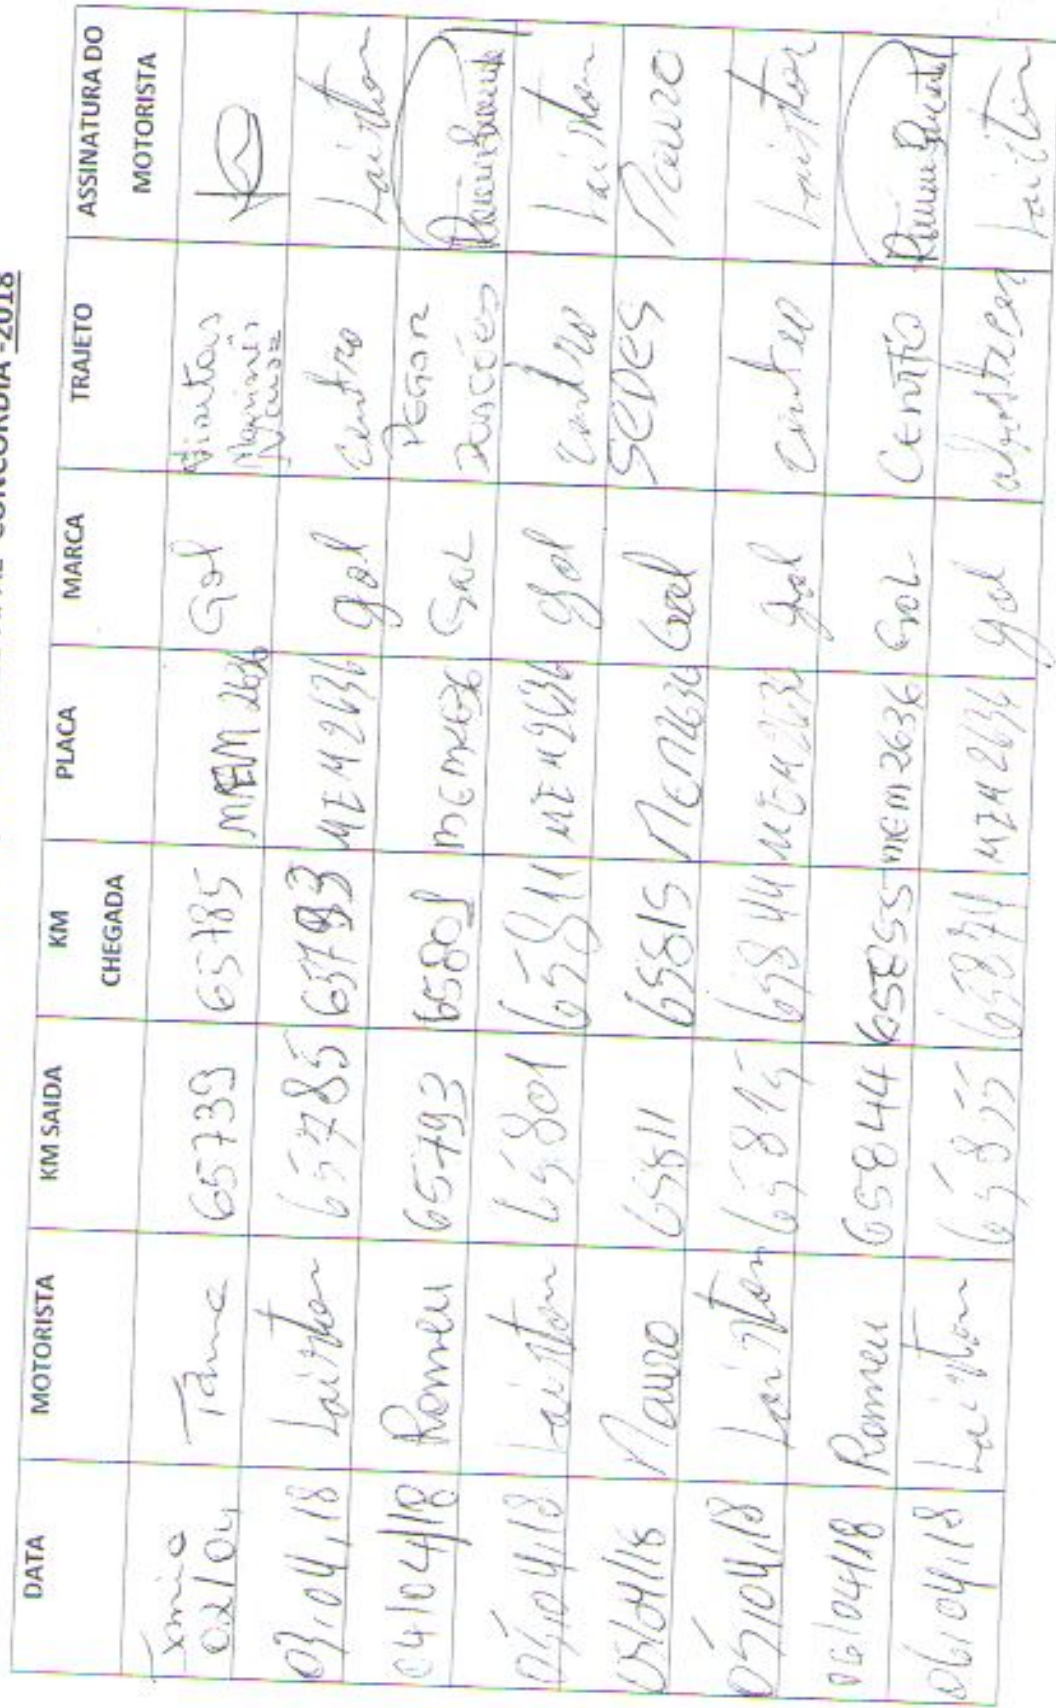 CONCORDIA -2018
DATA MOTORISTA KM SAIDA KM CHEGADA PLACA MARCA TRAJETO ASSINATURA DO MOTORISTA
02/04 65739 65785 MEM 2636 Gol
03,04,18 Lairton 65785 65793 MEM 2636 gol centro Lairton
04/04/18 Romeu 65793 65801 MEM2636 GOL PEGAR
05,04,18 Lairton 65801 65811 MEM 2636 gol centro Lairton
05/04/18 Mauro 65811 65815 MEM2636 Gol SEDES Mauro
05,04,18 Lairton 65815 65844 MEM 2636 gol centro Lairton
06/04/18 Romeu 65844 65855 MEM 2636 GOL CENTRO
06,04,18 Lairton 65855 65874 MEM 2636 gol abastecer Lairton